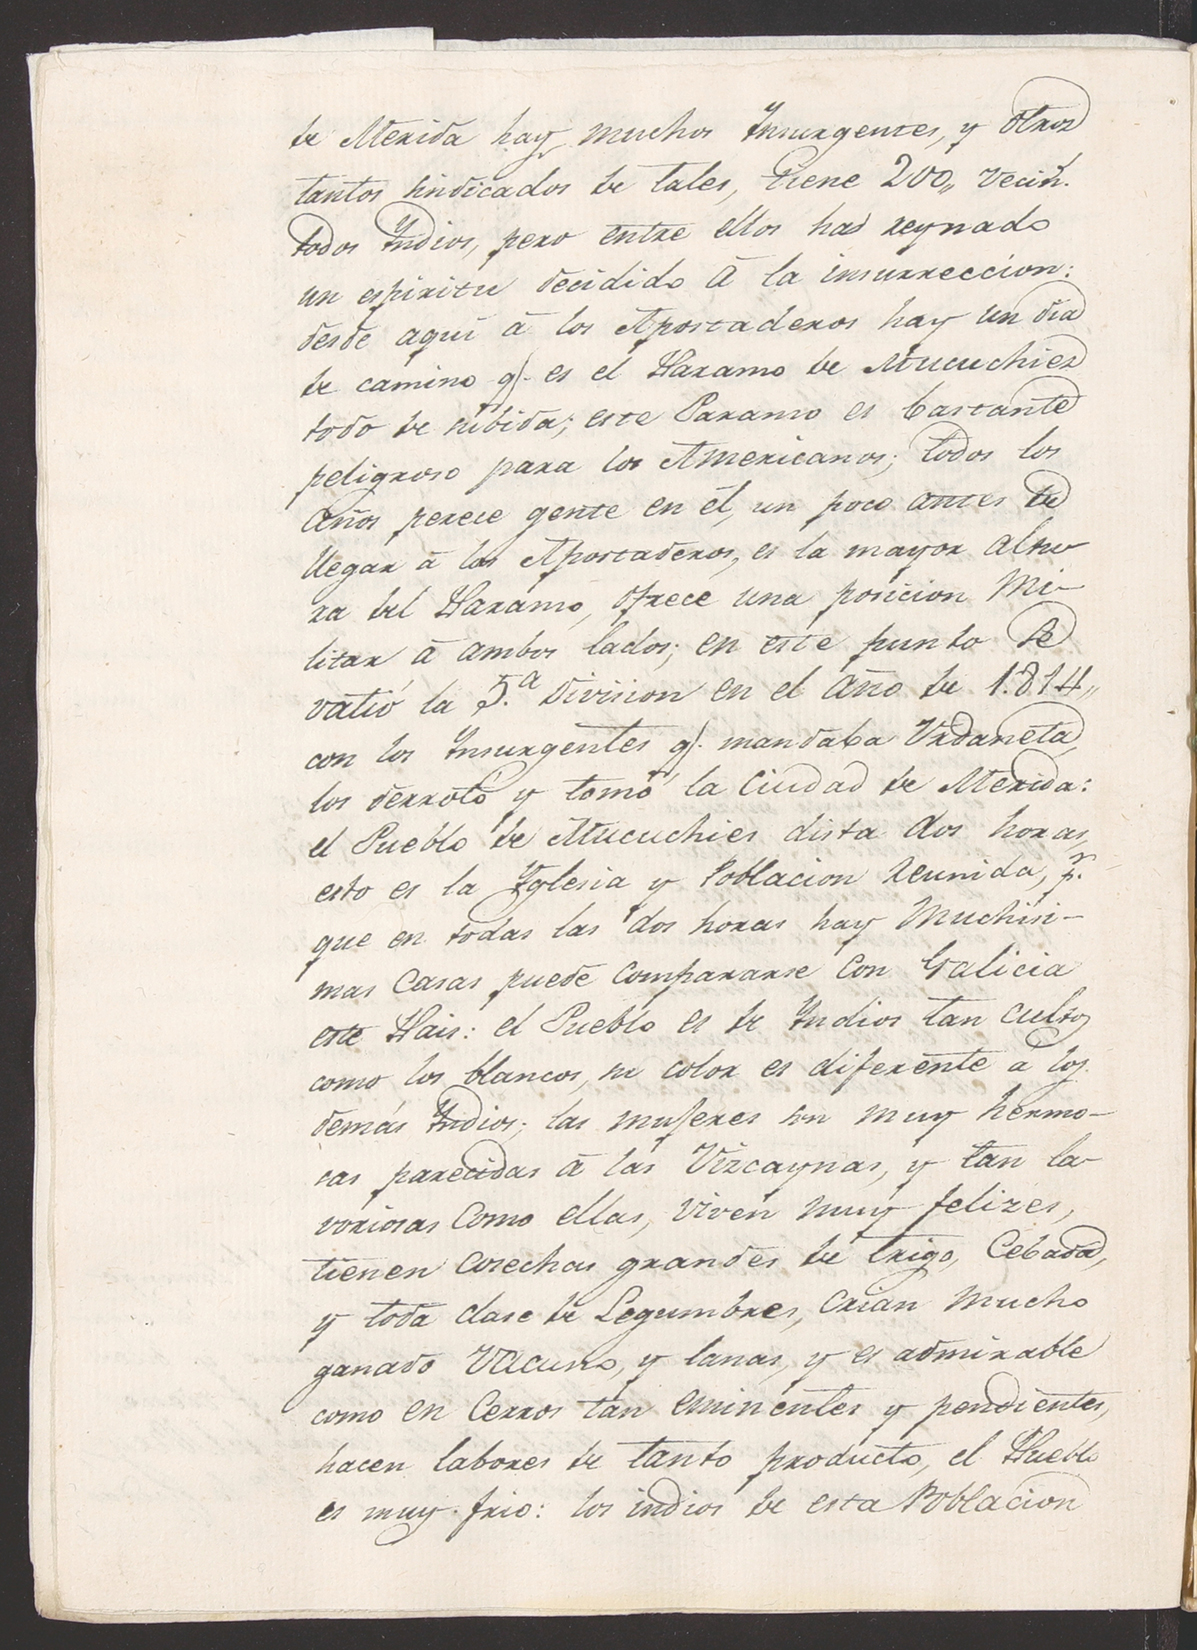 de Merida hay muchos Insurgentes, y otros
tantos sindicados de tales, tiene 200,, vecin.
todos Indios, pero entre ellos had reynado
un espiritu decidido á la insurreccion:
desde aqui á los Apostaderos hay un dia
de camino q.e es el Paramo de Mucuchies
todo de subida; este Paramo es bastante
peligroso para los Americanos; todos los
años perece gente en él, un poco antes de
llegar á los Apostaderos, es la mayor altu
ra del Paramo, ofrece una posicion Mi-
litar á ambos lados; en este punto se
vatió la 5.a Division en el año de 1.814,,
con los Insurgentes q.e mandaba Urdaneta,
los derrotó y tomó la Ciudad de Merida:
el Pueblo de Mucuchies dista dos horas,
esto es la Yglesia y Poblacion reunida, p.r
que en todas las dos horas hay Muchisi-
mas Casas puede compararse con Galicia
este Pais: el Pueblo es de Indios tan cultos
como los blancos, su color es diferente a los
demás Indios; las mujeres son muy hermo-
sas parecidas á las Vizcaynas, y tan la-
voriosas Como ellas, viven muy felizes,
tienen Cosechas grandes de trigo, Cebada,
y toda clase de Legumbres, Crian Mucho
ganado Vacuno, y lanas, y es admirable
como en Cerros tan eminentes y pendientes,
hacen labores de tanto producto, el Pueblo
es muy frio: los indios de esta Poblacion